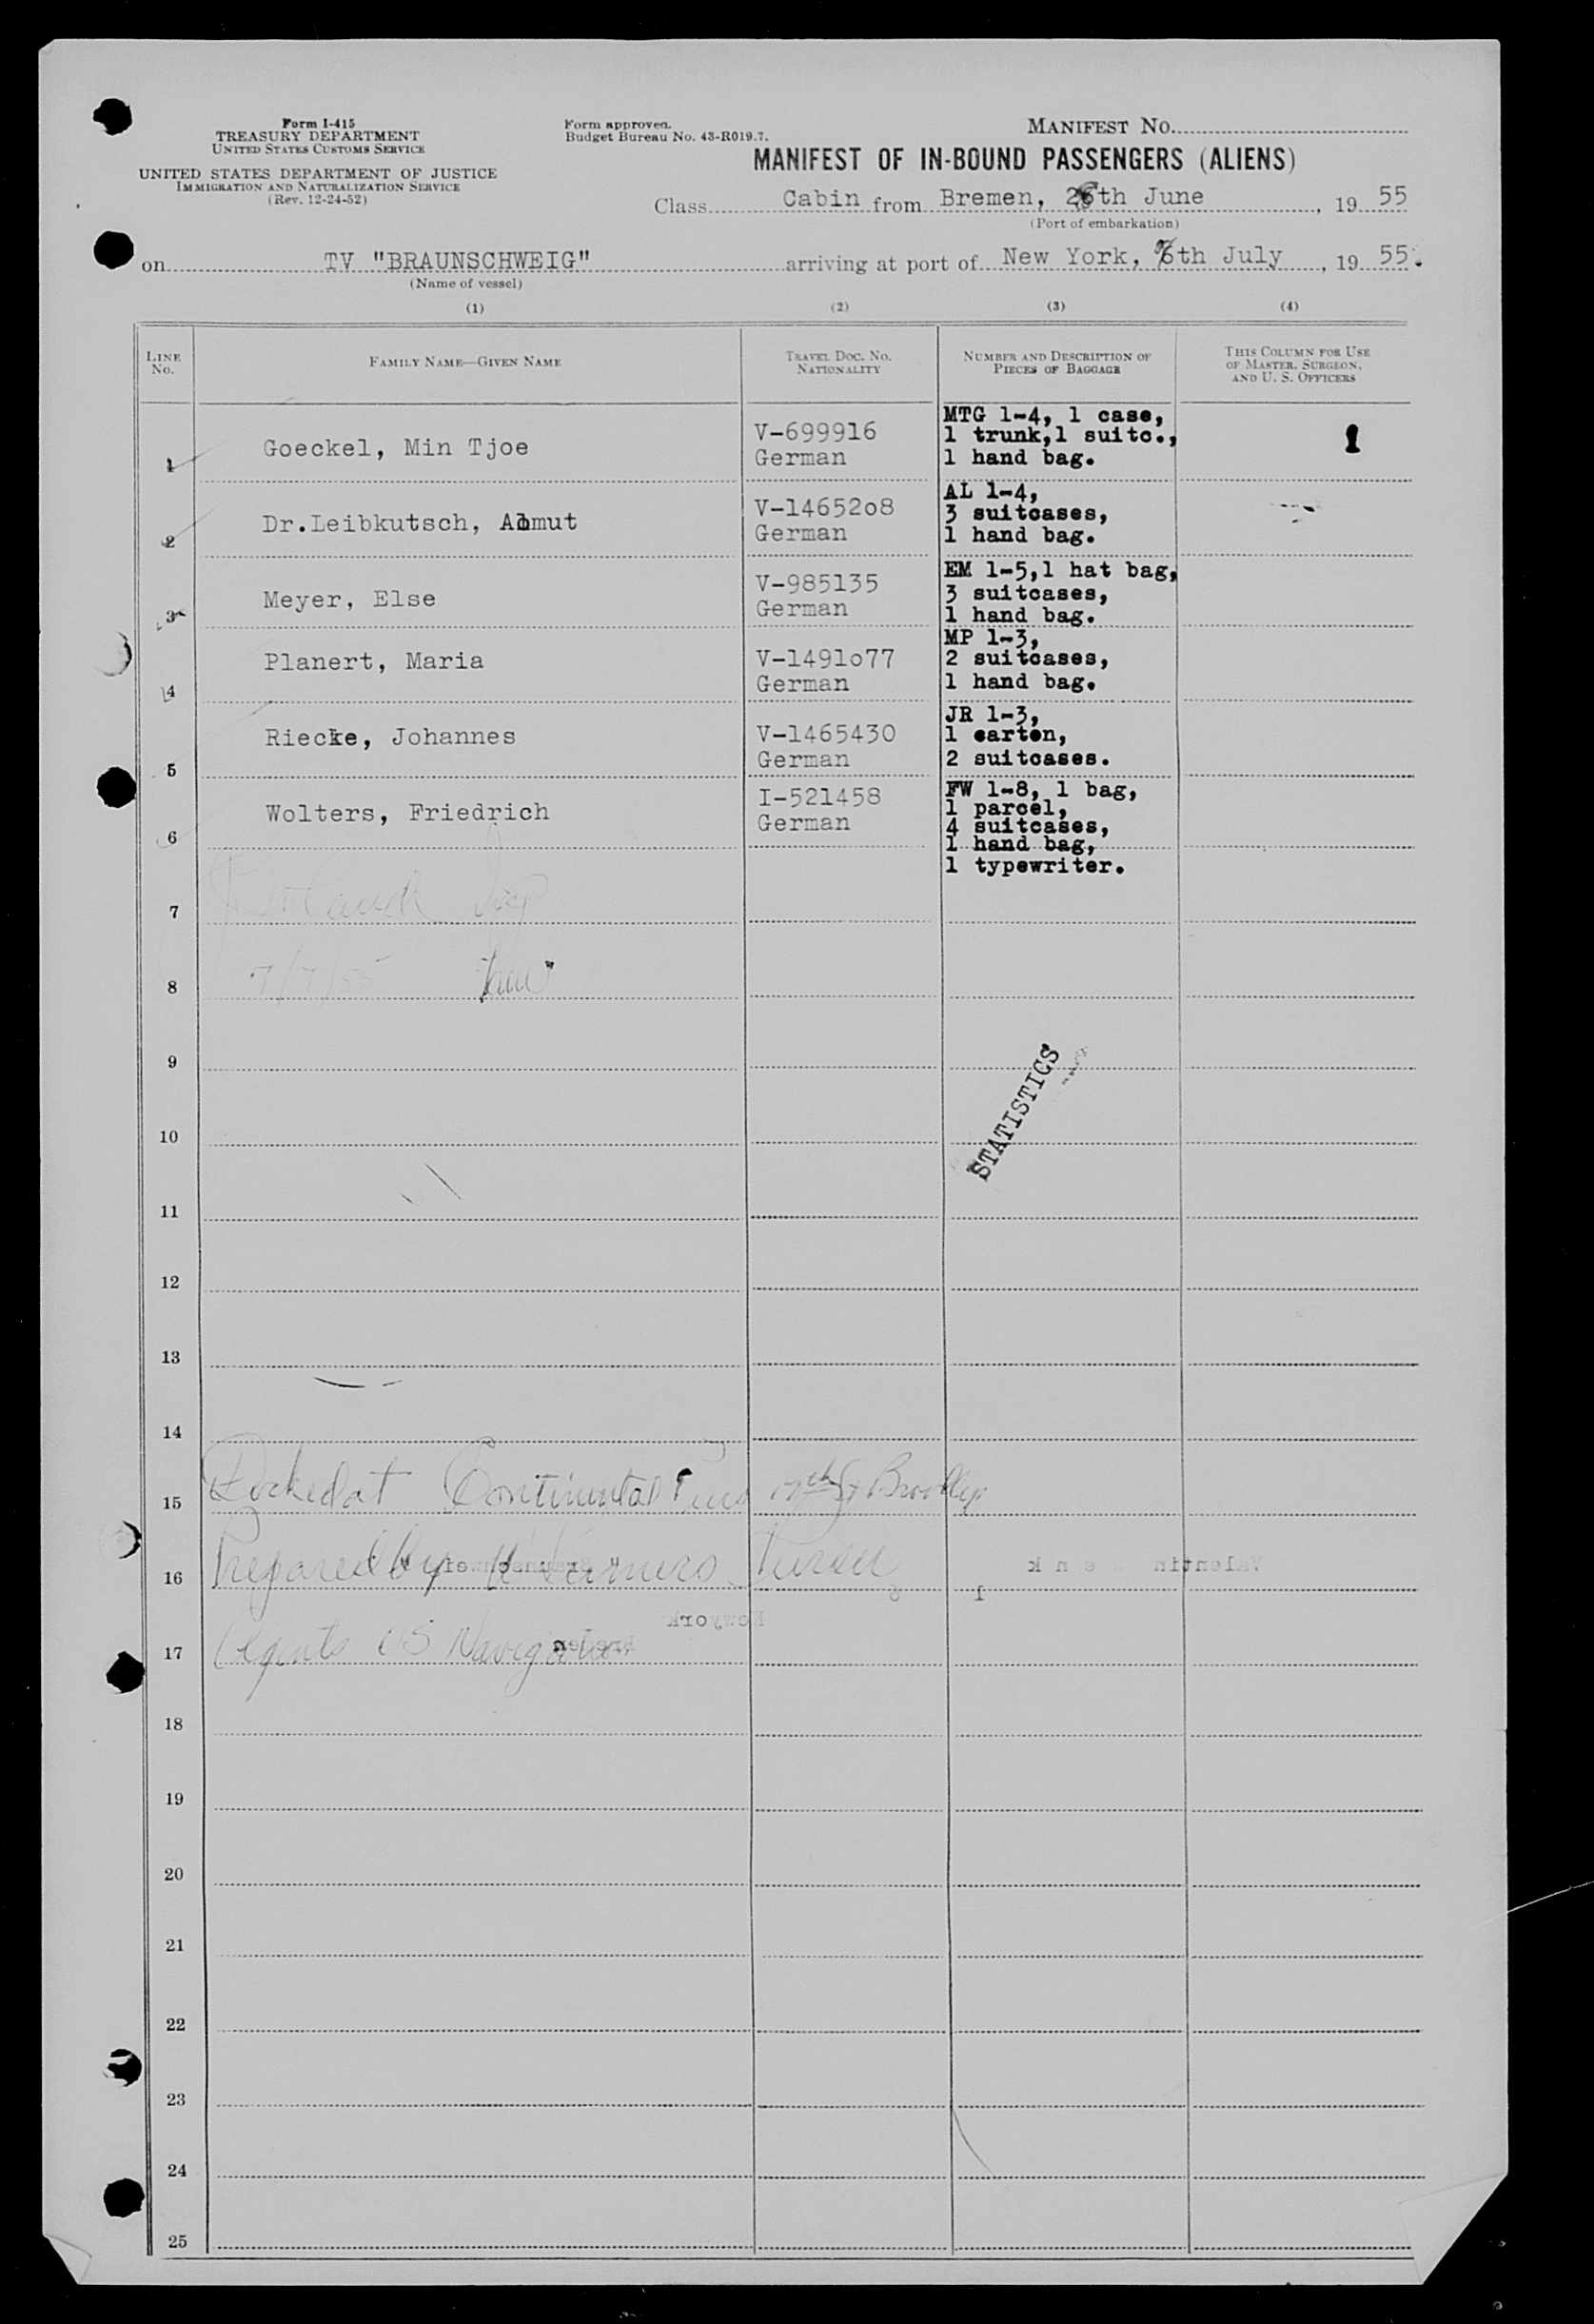 Form I-415
TREASURY DEPARTMENT
UNITED STATES CUSTOMS SERVICE
UNITED STATES DEPARTMENT OF JUSTICE
IMMIGRATION AND NATURALIZATION SERVICE
(Rev. 12-24-52)
Form approved.
Budget Bureau No. 43-R019.7.
MANIFEST NO.
MANIFEST OF IN-BOUND PASSENGERS (ALIENS)
Class Cabin from Bremen, th June, 19 55
(Port of embarkation)
on TV "BRAUNSCHWEIG" arriving at port of New York, th July, 19 55.
(Name of vessel)
(1) (2) (3) (4)
LINE NO.
FAMILY NAME—GIVEN NAME
TRAVEL DOC. NO.
NATIONALITY
NUMBER AND DESCRIPTION OF
PIECES OF BAGGAGE
THIS COLUMN FOR USE
OF MASTER, SURGEON,
AND U. S. OFFICERS
1 Goeckel, Min Tjoe
V-699916
German
MTG 1-4, 1 case,
1 trunk,1 suitc.,
1 hand bag.
2 Dr.Leibkutsch,
V-14652o8
German
AL 1-4,
3 suitcases,
1 hand bag.
3 Meyer, Else
V-985135
German
EM 1-5,1 hat bag,
3 suitcases,
1 hand bag.
4 Planert, Maria
V-1491o77
German
MP 1-3,
2 suitcases,
1 hand bag.
5 Riecke, Johannes
V-1465430
German
JR 1-3,
1 carton,
2 suitcases.
6 Wolters, Friedrich
I-521458
German
FW 1-8, 1 bag,
1 parcel,
4 suitcases,
1 hand bag,
1 typewriter.
7
8 7/7/55
9
STATISTICS
10
11
12
13
14
15 Docked at Continental Piers 17th St Brooklyn
16 Prepared by Purser
17 Agents US Navigation
18
19
20
21
22
23
24
25